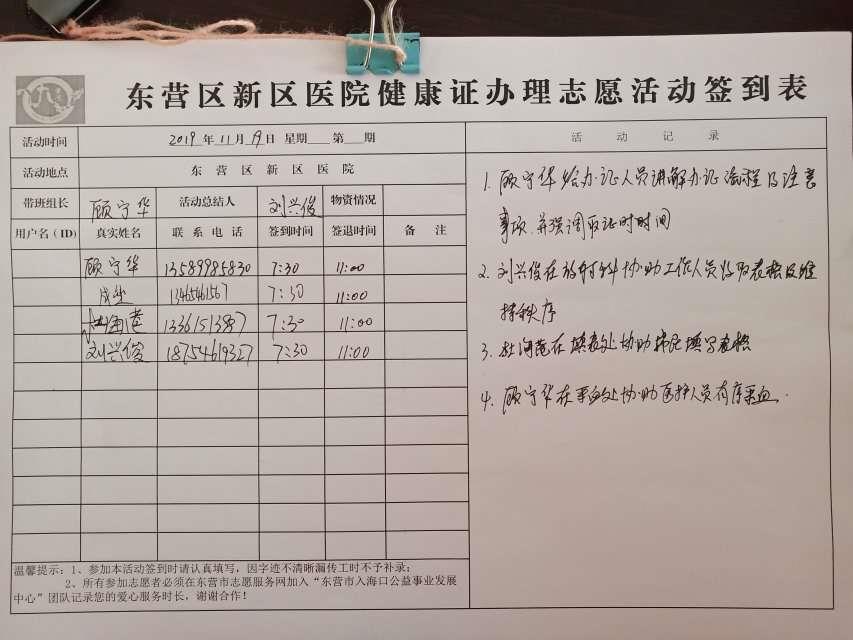 东营区新区医院健康证办理志愿活动签到表
活动时间 2019年11月19日 星期 第 期 活动记录
活动地点 东营区新区医院
带班组长 顾宁华 活动总结人 刘兴俊 物资情况
用户名(ID) 真实姓名 联系电话 签到时间 签退时间 备注
顾宁华 13589985830 7:30 11:00
13465461567 7:30 11:00
13361513987 7:30 11:00
刘兴俊 18754619327 7:30 11:00
1. 顾宁华给办证人员讲解办证流程及注意
事项,并强调取证时时间
2. 刘兴俊在放射科协助工作人员收取表格及维
持秩序
3. 在填表处协助市民填写表格
4. 顾宁华在采血处协助医护人员有序采血.
温馨提示:1、参加本活动签到时请认真填写,因字迹不清晰漏传工时不予补录;
2、所有参加志愿者必须在东营市志愿服务网加入“东营市入海口公益事业发展
中心”团队记录您的爱心服务时长,谢谢合作!